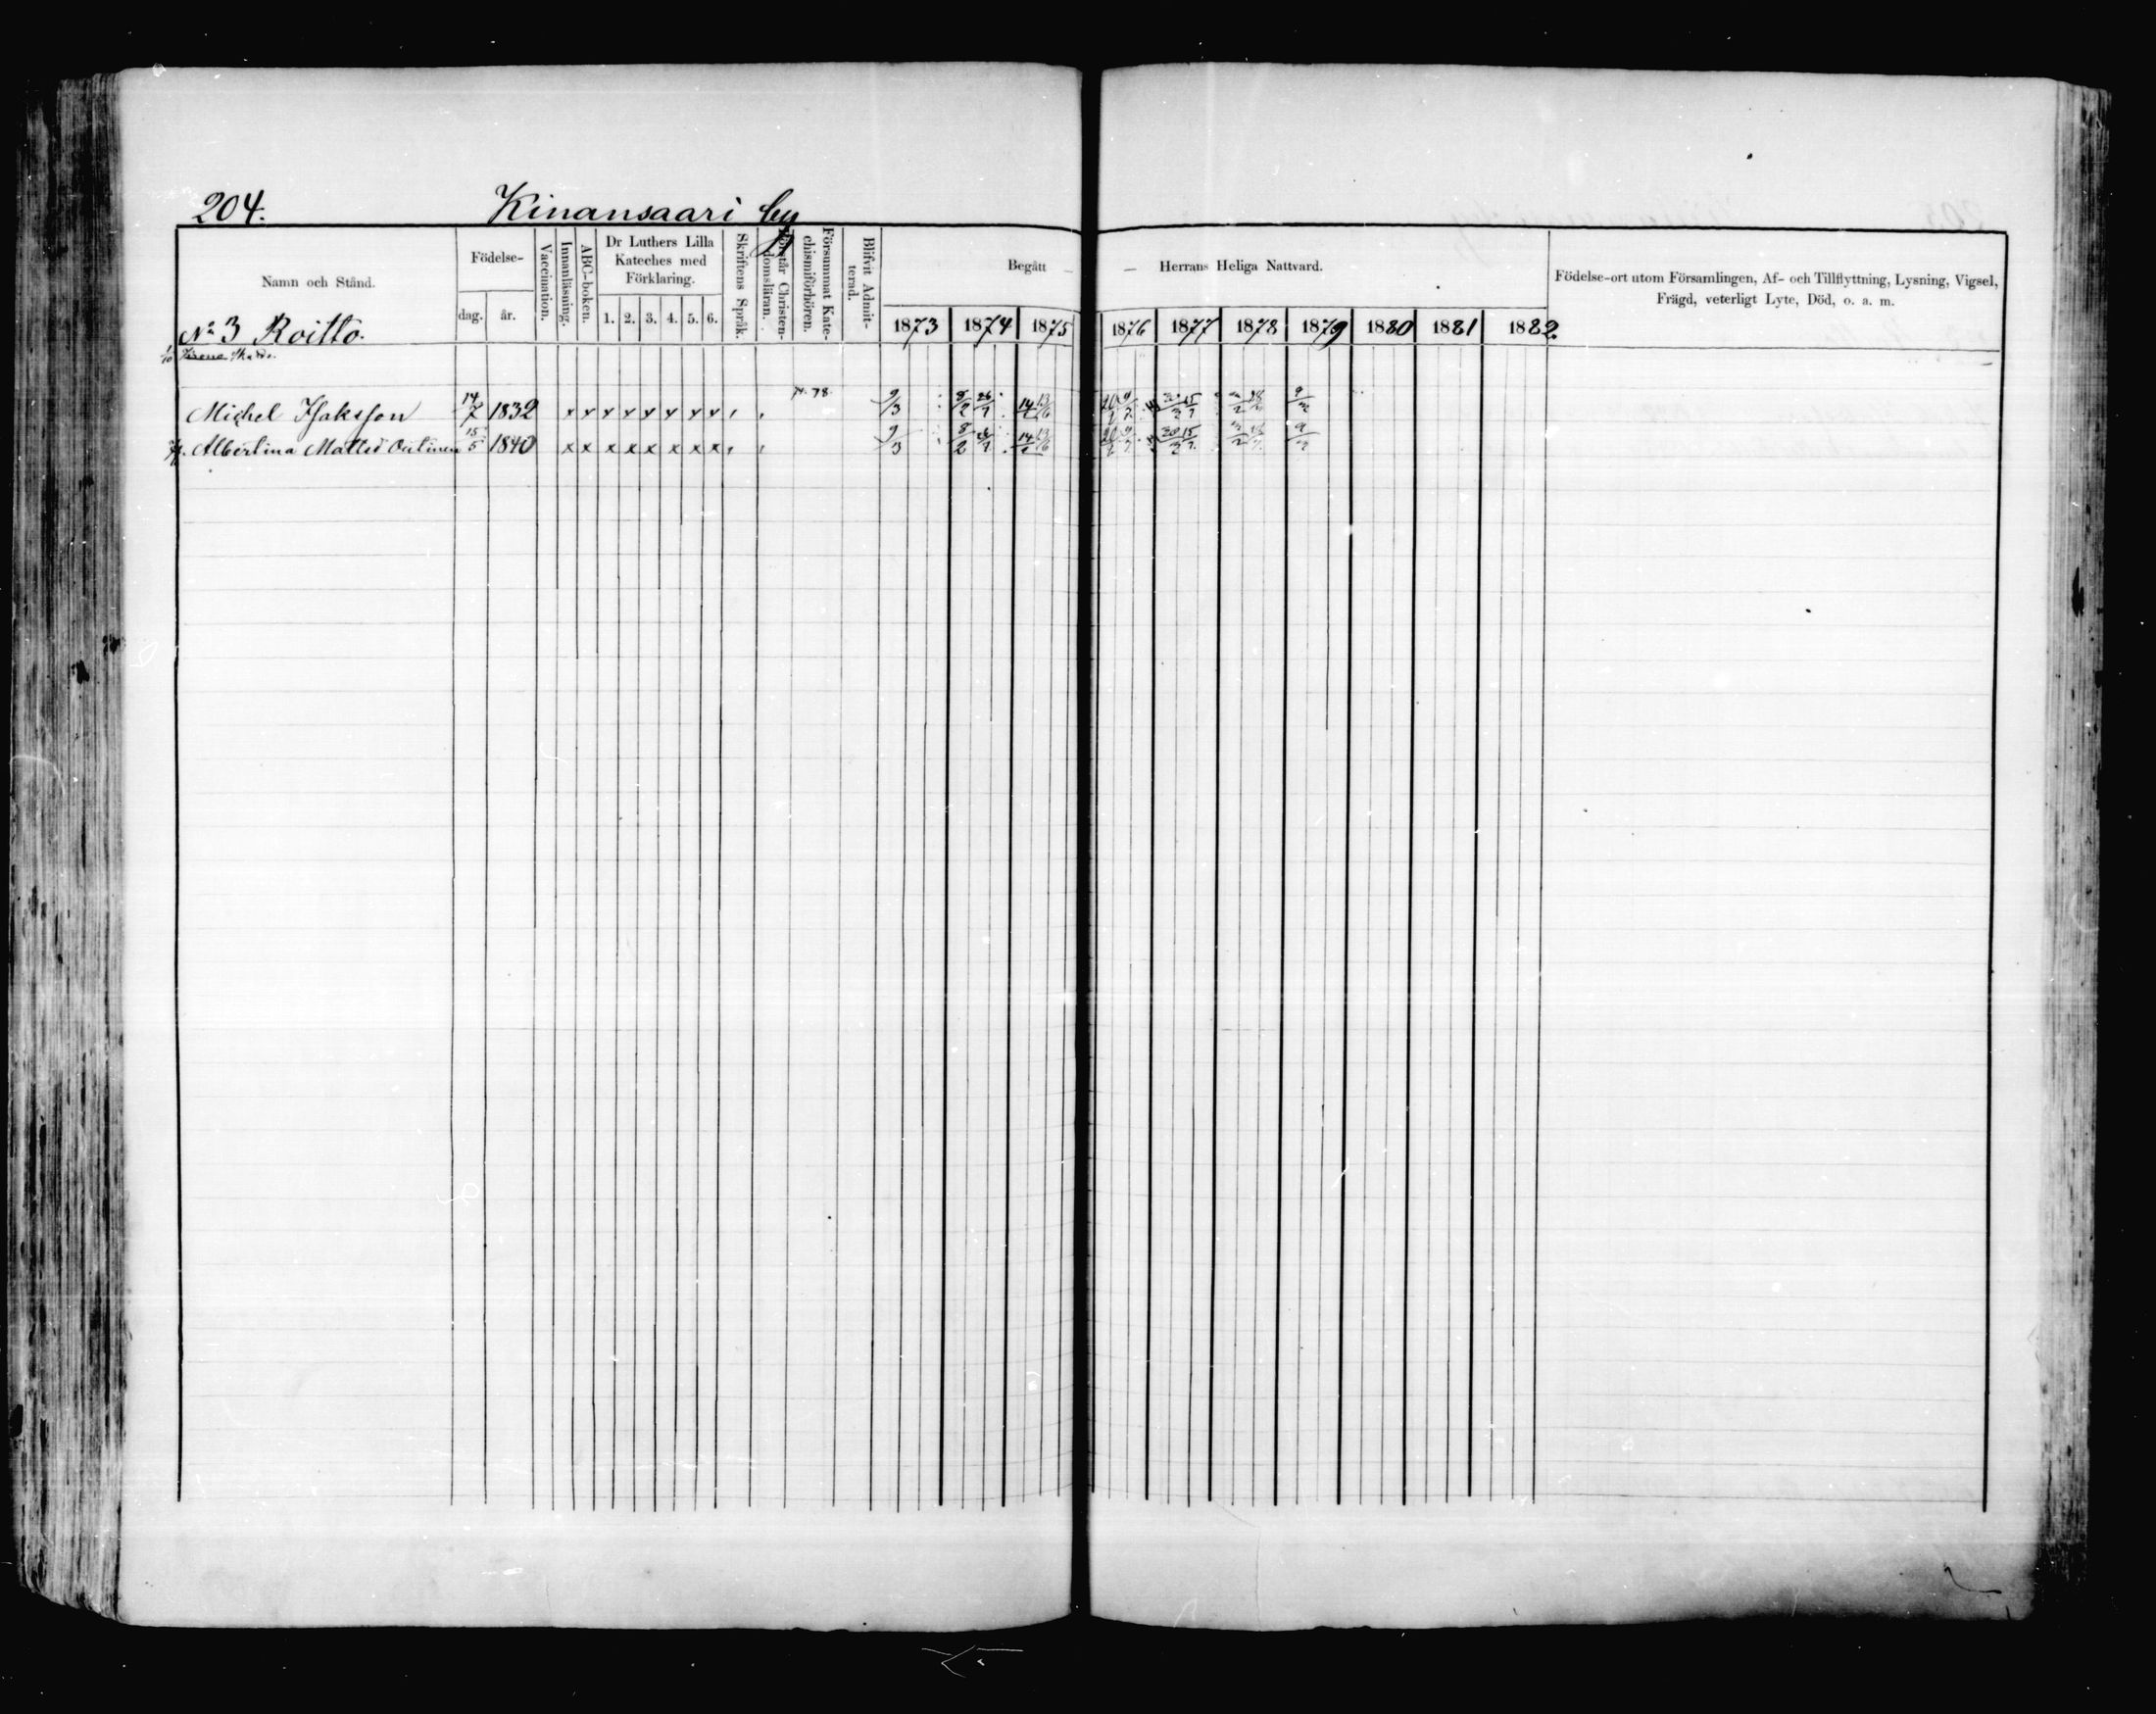 204. Kinansaari by
Namn och Stånd.
Födelse-
dag.
år.
Vaccination.
Innanläsning.
ABC-boken.
Dr Luthers Lilla
Kateches med
Förklaring.
1. 2. 3. 4. 5. 6.
Skriftens Språk.
Förstår Christen-
domsläran.
Försummat Kate-
chismiförhören.
Blifvit Admit-
terad.
Begått — — Herrans Heliga Nattvard.
1873 1874 1875 1876 1877 1878 1879 1880 1881 1882
Födelse-ort utom Församlingen, Af- och Tillflyttning, Lysning, Vigsel,
Frägd, veterligt Lyte, Död, o. a. m.
No 3 Roitto.
Michel Isaksson 14/7 1832 x x x x x x x x 78. 9/3 8/2 26/7 14/ 13/6 15/7
Albertina Mattsd 15/5 1840 x x x x x x x x 9/3 8/2 26/7 14/ 13/6 15/7